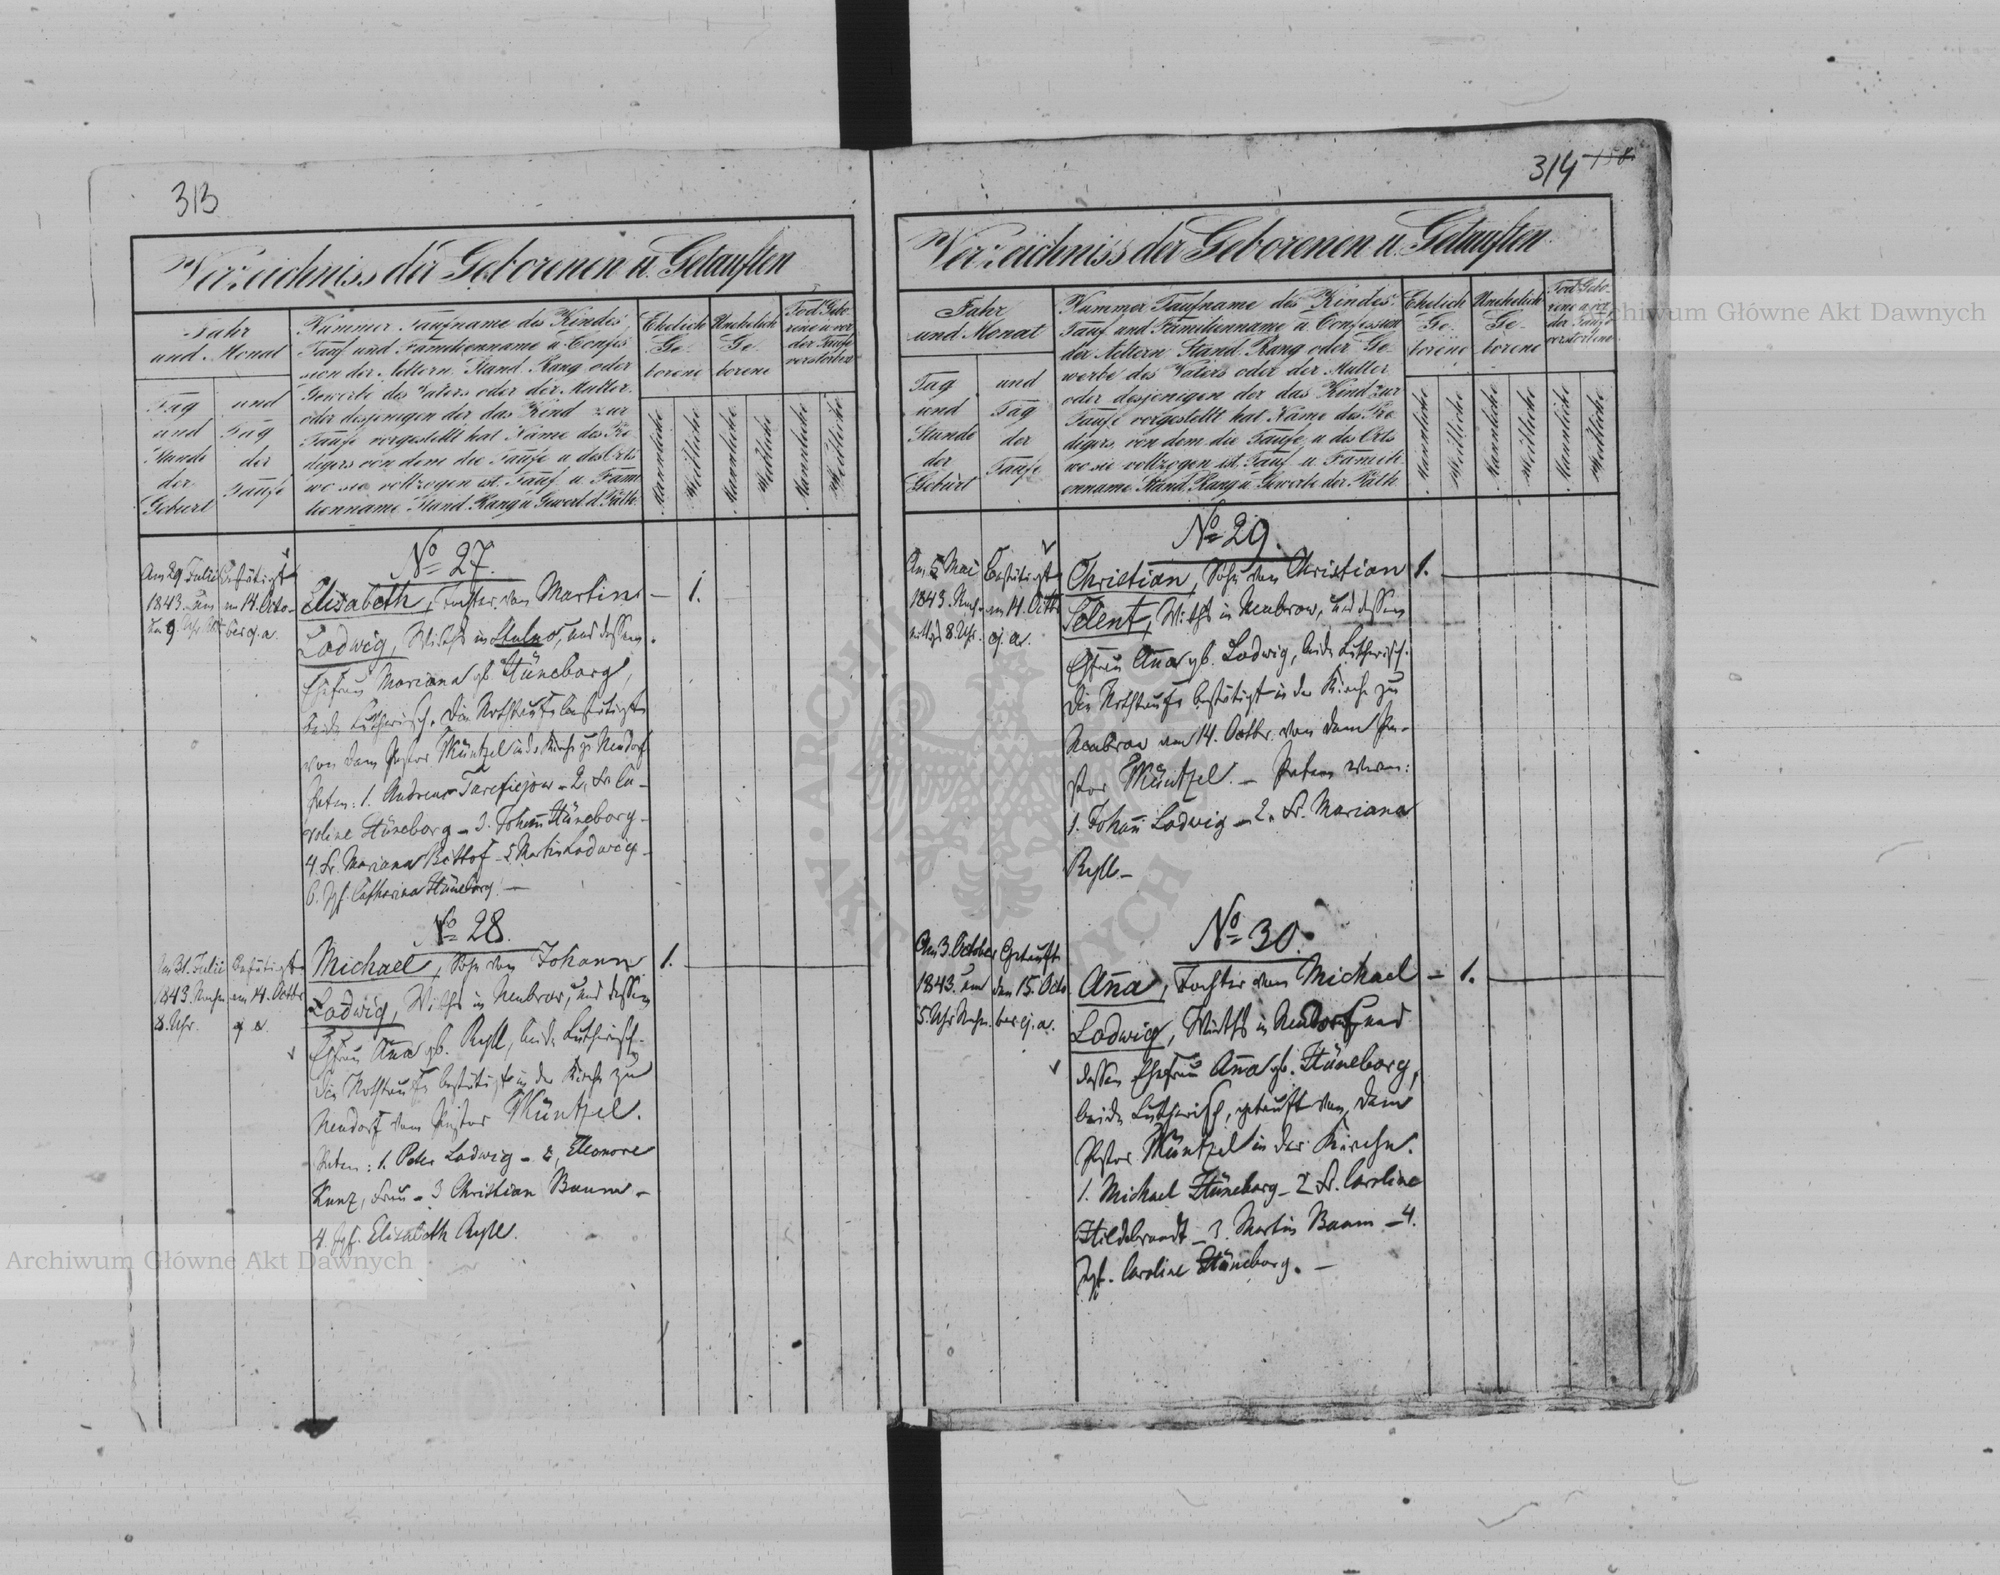 313
Verzeichniss der Geborenen u. Getauften
Jahr
und Monat
Tag
und
Stunde
der
Geburt
und
Tag
der
Taufe
Nummer Taufname des Kindes,
Tauf und Familienname u Confes
sion der Aeltern. Stand Rang oder
Gewerbe des Vaters oder der Mutter
oder desjenigen der das Kind zur
Taufe vorgestellt hat Name des Pre
digers von dem die Taufe u des Orts
wo sie vollzogen ist. Tauf u. Fami
lienname Stand Rang u Gewerb d. Path.
Ehelich
Ge
borene
Unehelich
Ge
borene
Tod Gebo
rene u vor
der Taufe
verstorben
Mannliche
Weibliche
Mannliche
Weibliche
Mannliche
Weibliche
Am 29 Julii
1843. um
9. Uhr
Bestätigt
am 14. Octo-
ber ej. a.
No 27.
Elisabeth, Tochter von Martin — 1.
Ladwig, Wirths in und dessen
Ehefrau Mariana gb. Hüneborg,
beide Lutherisch. Die Nothtaufe bestätigt
von dem Pastor Müntzel in d. Kirche zu Neudorf
Paten: 1. Andreas - 2. Fr. Ca-
roline Hüneborg - 3. Johann Hüneborg -
4. Fr. Mariana - 5. Martin Ladwig -
6. Jgf. Catharina Hüneborg. —
Am 31. Julii
1843. Nachm.
8. Uhr.
Bestätigt
am 14. Octbr
ej. a.
No 28.
Michael, Sohn von Johann 1.
Ladwig, Wirths in Neubrow, und dessen
Ehefrau Aña gb. Ryll, beide Lutherisch.
Die Nothtaufe bestätigt in der Kirche zu
Neudorf vom Pastor Müntzel.
Paten: 1. Peter Ladwig - 2, Eleonore
Kunz, Frau - 3 Christian Baum -
4. Jgf. Elisabeth Ryll.
314
158
Verzeichniss der Geborenen u. Getauften
Jahr
und Monat
Tag
und
Stunde
der
Geburt
und
Tag
der
Taufe
Nummer Taufname des Kindes
Tauf und Familienname u. Confession
der Aeltern Stand Rang oder Ge-
werbe des Vaters oder der Mutter
oder desjenigen der das Kind zur
Taufe vorgestellt hat Name des Pre
digers, von dem die Taufe u des Orts
wo sie vollzogen ist, Tauf u Famili
enname Stand Rang u Gewerbe der Path
Ehelich
Ge-
borene
Unehelich
Ge-
borene
Tod Gebo-
rene u. vor
der Taufe
verstorbene
Mannliche
Weibliche
Mannliche
Weibliche
Mannliche
Weibliche
Am 5 Mai
1843. Nach-
8. Uhr.
Bestätigt
am 14. Octbr
ej. a.
No 29.
Christian, Sohn von Christian 1.
Selent, Wirths in Neubrow, und dessen
Ehefrau Aña gb. Ladwig, beide Lutherisch.
Die Nothtaufe bestätigt in der Kirche zu
Neubrow am 14. Octbr. von dem Pa-
stor Müntzel. — Paten waren:
1. Johañ Ladwig - 2. Fr. Mariana
Ryll —
Am 3. October
1843. um
5. Uhr Nachm.
Getauft
den 15. Octo
ber ej. a.
No 30.
Aña, Tochter von Michael — 1.
Ladwig, Wirths in Neudorf und
dessen Ehefrau Aña gb. Hüneborg,
beide Lutherisch, getauft von dem
Pastor Müntzel in der Kirche.
1. Michael Hüneborg - 2 Fr. Caroline
Hildebrandt - 3. Martin Baum - 4.
Jgf. Caroline Hüneborg. —
Archiwum Główne Akt Dawnych
Archiwum Główne Akt Dawnych